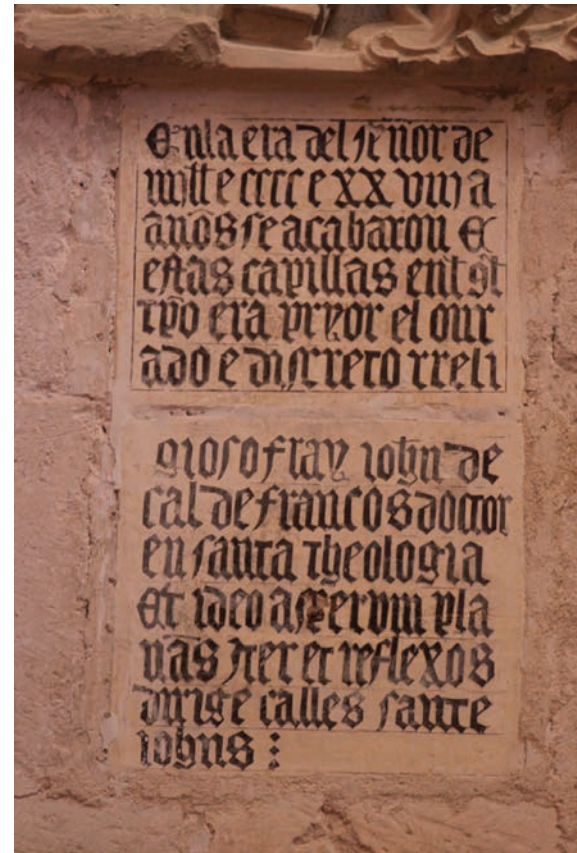 Enla era del señor de
mill e cccc e xx viij a
años se acabaron E
estas capillas
tpo era pryor el onr
ado e discreto rreli
gioso fray iohn de
cal de francos doctor
en santa theologia
Et ideo pla
nas Iter et reflexos
dirige calles sante
iohns :